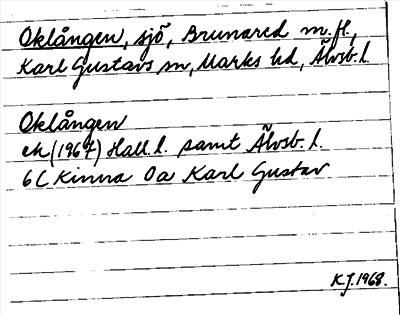 Oklången, sjö, Brunared m.fl.,
Karl Gustavs sn, Marks hd, Älvsb. l.
Oklången
ek (1967) Hall. l. samt Älvsb. l.
6 C Kinna 0a Karl Gustav
K.J. 1968.